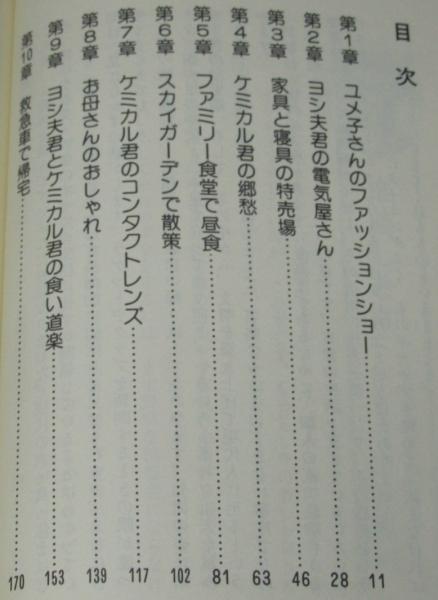 目次
第1章 ユメ子さんのファッションショー……………11
第2章 ヨシ夫君の電気屋さん……………28
第3章 家具と寝具の特売場……………46
第4章 ケミカル君の郷愁……………63
第5章 ファミリー食堂で昼食……………81
第6章 スカイガーデンで散策……………102
第7章 ケミカル君のコンタクトレンズ……………117
第8章 お母さんのおしゃれ……………139
第9章 ヨシ夫君とケミカル君の食い道楽……………153
第10章 救急車で帰宅……………170